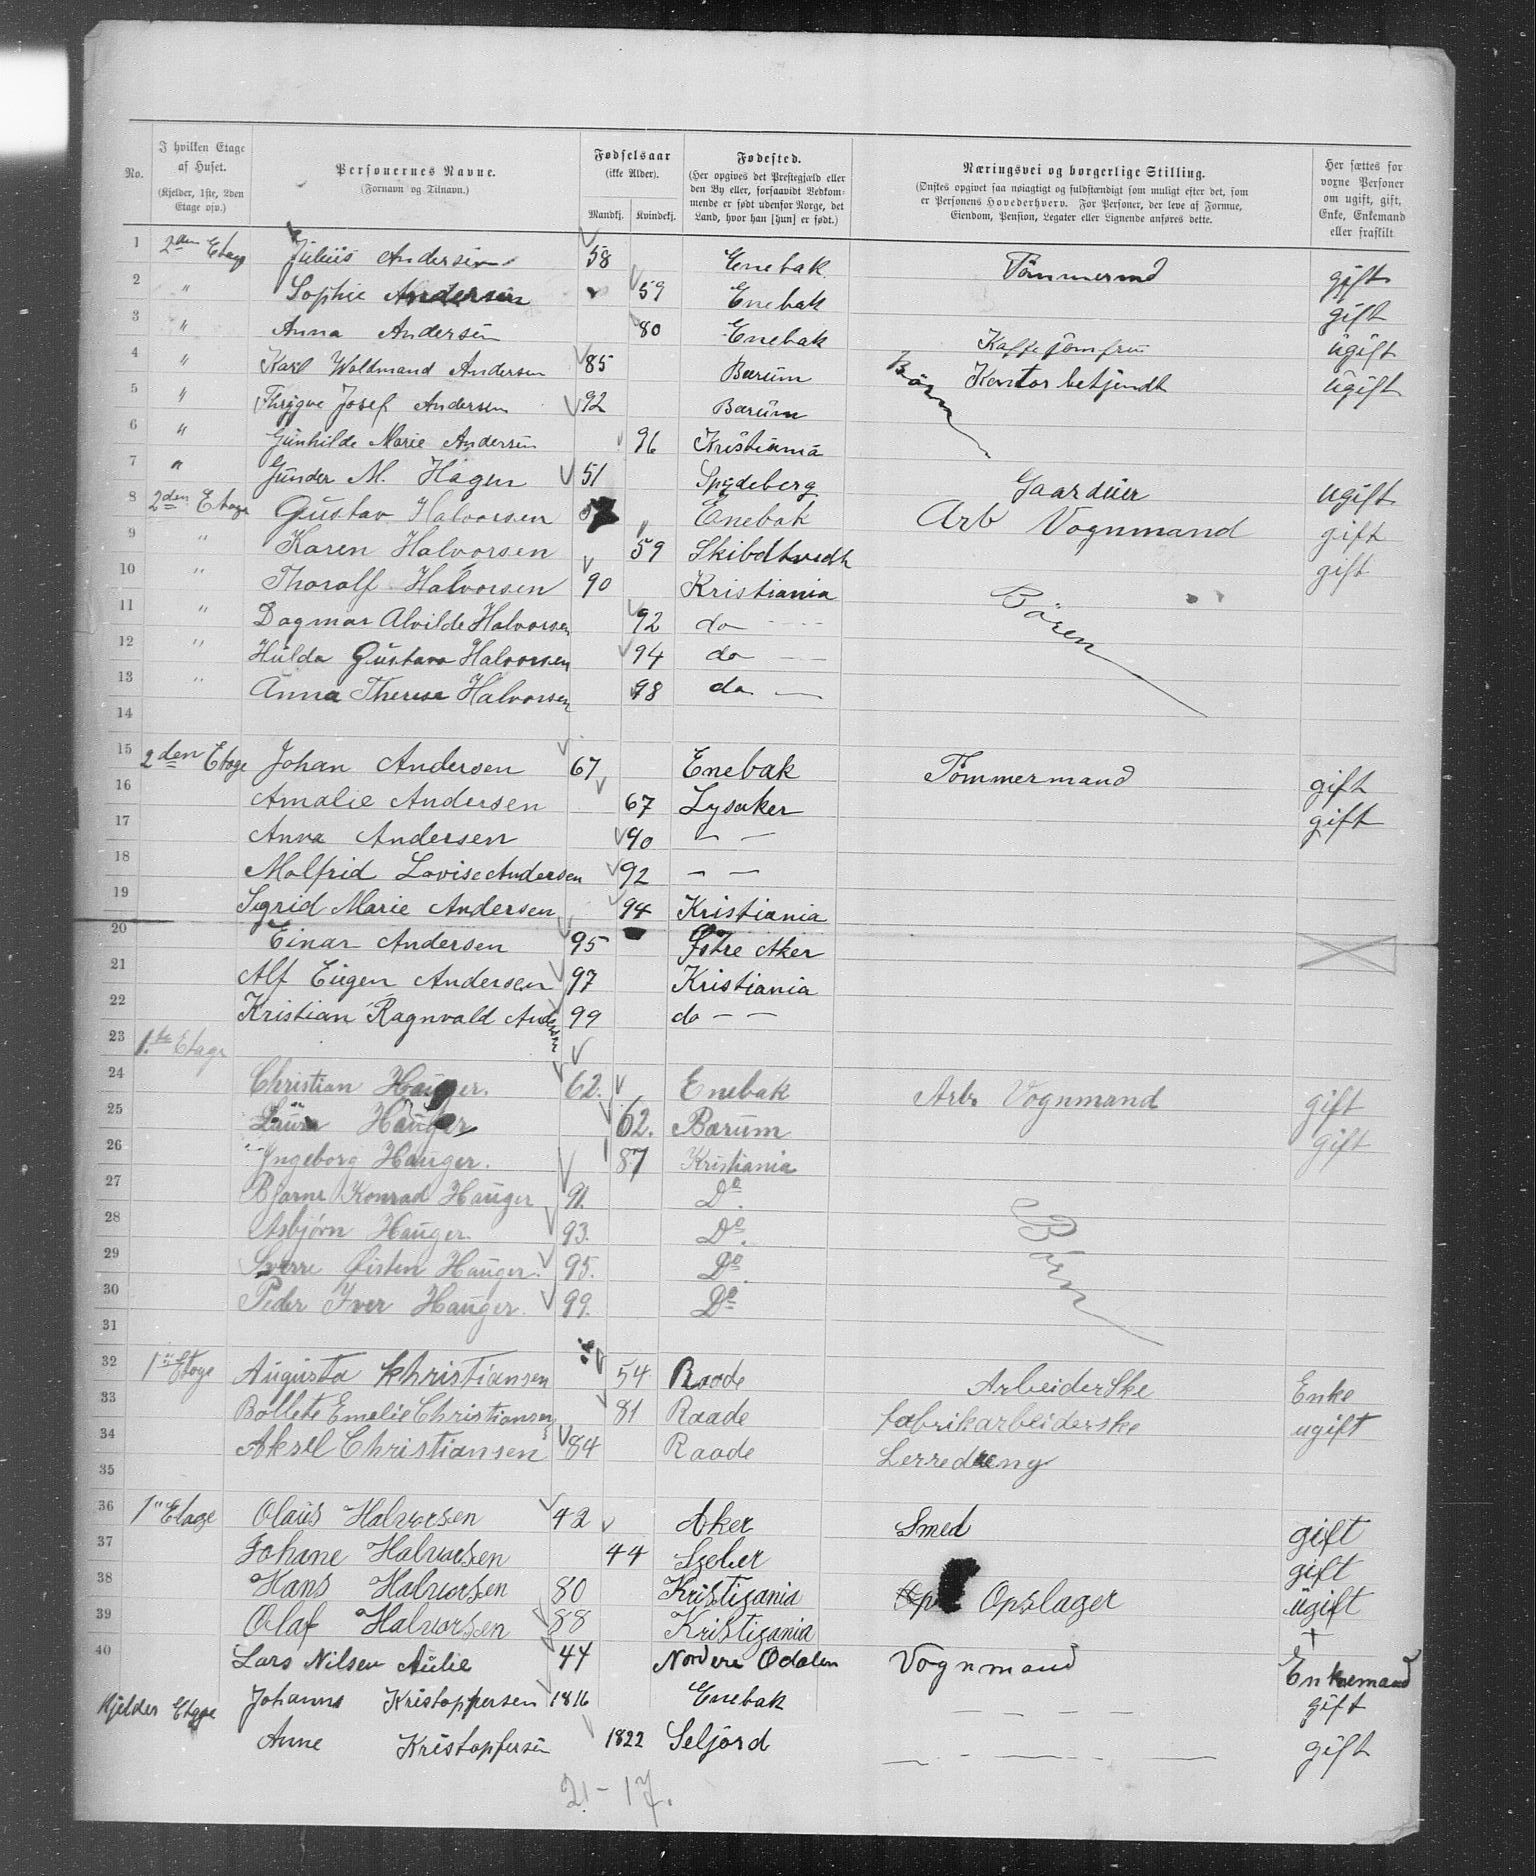 No.	I hvilken Etage af Huset. (Kjelder, 1ste, 2den Etage osv.)	Personernes Navne. (Fornavn og Tilnavn.)	Fødselsaar (ikke Alder). Mandkj. Kvindekj.	Fødested. (Her opgives det Prestegjæld eller den By eller, forsaavidt Vedkommende er født udenfor Norge, det Land, hvor han [hun] er født.)	Næringsvei og borgerlige Stilling. (Ønskes opgivet saa nøiagtigt og fuldstændigt som muligt efter det, som er Personens Hovederhverv. For Personer, der leve af Formue, Eiendom, Pension, Legater eller Lignende anføres dette.)	Her sættes for vogne Personer om ugift, gift, Enke, Enkemand eller fraskilt
1 2den Etage Julius Andersen 58 Enebak Tömmermd gift
2 " Sophie Andersen 59 Enebak gift
3 " Anna Andersen 80 Enebak Kaffejomfru ugift
4 " Karl Woldmand Andersen 85 Bærum Kontorbetjendt ugift
5 " Thrygve Josef Andersen 92 Bærum Börn
6 " Gunhilde Marie Andersen 96 Kristiania
7 " Gunder M. Hagen 51 Spydeberg Gaardeier ugift
8 2den Etage Gustav Halvorsen Enebak Arb Vognmand gift
9 " Karen Halvorsen 59 Skibdtvedt gift
10 " Thoralf Halvorsen 90 Kristiania
11 " Dagmar Alvilde Halvorsen 92 do Bören
12 " Hulda Gustava Halvorsen 94 do
13 " Anna Therese Halvorsen 98 do
14
15 2den Etage Johan Andersen 67 Enebak Tömmermand gift
16 Amalie Andersen 67 Lysaker gift
17 Anna Andersen 90 — —
18 Malfrid Lovise Andersen 92 — —
19 Sigrid Marie Andersen 94 Kristiania
20 Einar Andersen 95 Østre Aker
21 Alf Eugen Andersen 97 Kristiania
22 Kristian Ragnvald Andersen 99 do — —
23 1.ste Etage
24 Christian Hauger. 62. Enebak Arb. Vognmand gift
25 Laura Hauger 62. Bærum gift
26 Ingeborg Hauger. 87 Kristiania
27 Bjarne Konrad Hauger 91. Do.
28 Asbjørn Hauger. 93. Do. Börn
29 Sverre Øisten Hauger. 95. Do
30 Peder Iver Hauger. 99. Do
31
32 1ste Etage Augusta Christiansen 54 Raade Arbeiderske Enke
33 Bollete Emelie Christiansen 81 Raade fabrikarbeiderske ugift
34 Aksel Christiansen 84 Raade Lerredreng
35
36 1" Etage Olaus Halvorsen 42 Aker Smed gift
37 Johane Halvorsen 44 gift
38 Hans Halvorsen 80 Kristigania Opslager ugift
39 Olaf Halvorsen 88 Kristigania
40 Lars Nilsen Aulie 44 Nordere Odalen Vognmand Enkemand
Kjelder Etage Johanns Kristoppersen 1816 Enebak — — — — gift
Anne Kristopfersen 1822 Seljord gift
21 - 17.